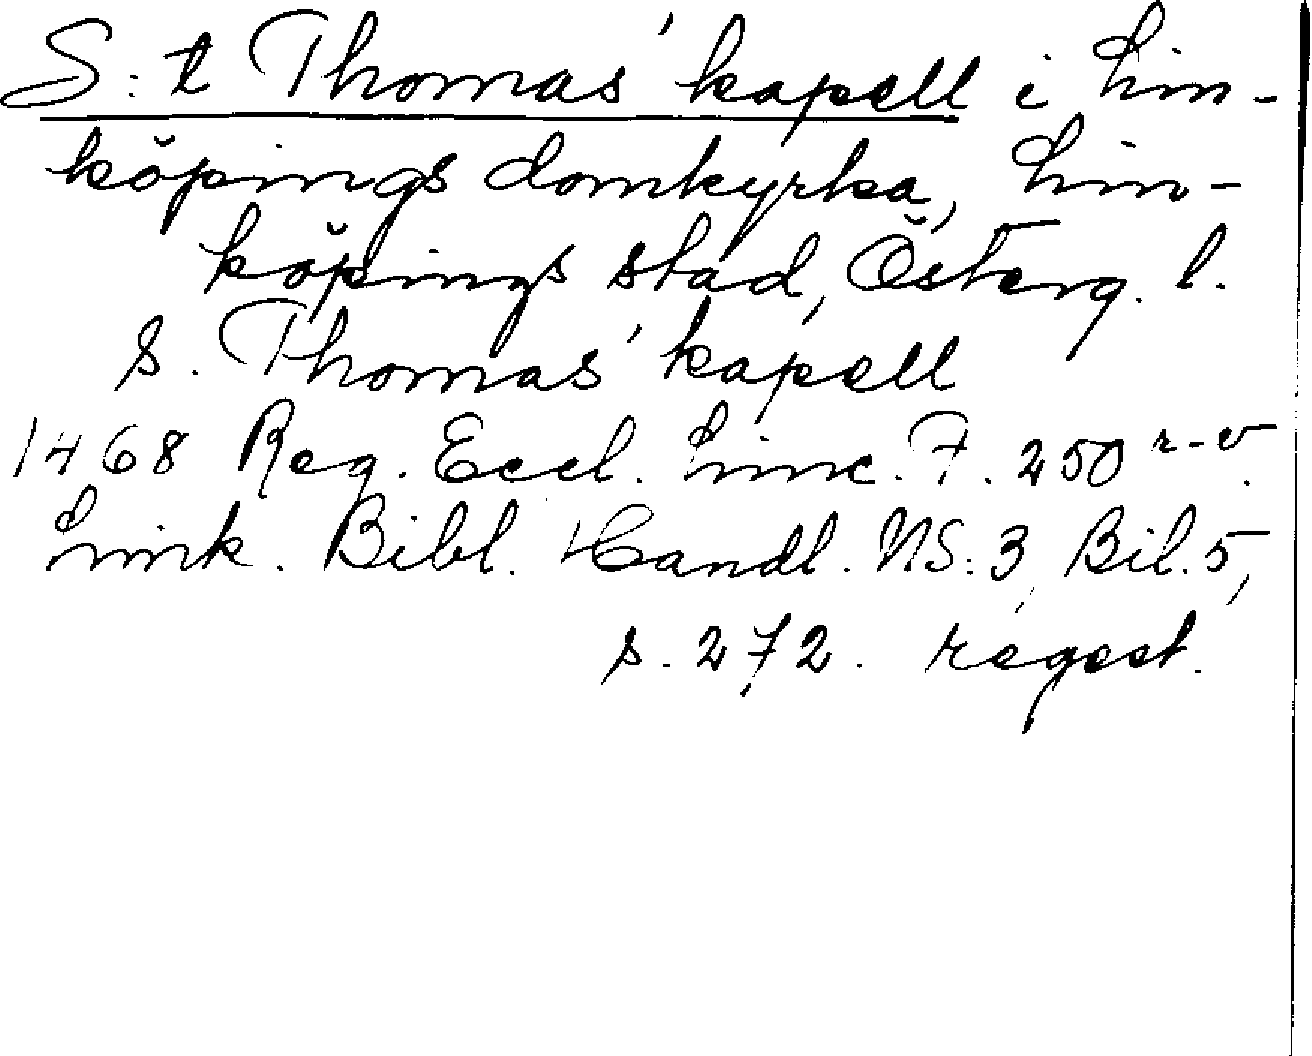 S:t Thomas' kapell i Lin-
köpings domkyrka, Lin-
köpings stad, Österg. l.
S. Thomas' kapell
1468 Reg. Eccl. Linc. F. 250 r-v.
Link. Bibl. Handl. NS: 3, Bil. 5,
s. 272. regest.